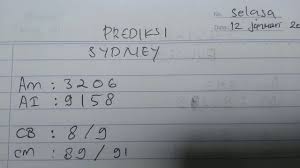 Selasa
12 januari
PREDIKSI
SYDNEY
Am : 3206
AI : 9158
CB : 8/9
cm : 89/91